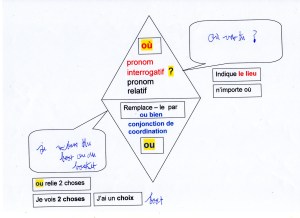 où
pronom
interrogatif ?
pronom
relatif
Où vas tu ?
Indique le lieu
n'importe où
Remplace – le par
ou bien
conjonction de
coordination
ou
ou relie 2 choses
Je vois 2 choses
J'ai un choix